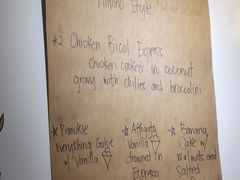 Filipino Style
*2 Chicken Bicol Express
Chicken cooked in coconut
gravy with chilies and broccolini
*Pizookie
Everything Cookie
w/ Vanilla
*Affogato
Vanilla
drowned in
Espresso
*Banana
Cake w/
Walnuts and
Salted